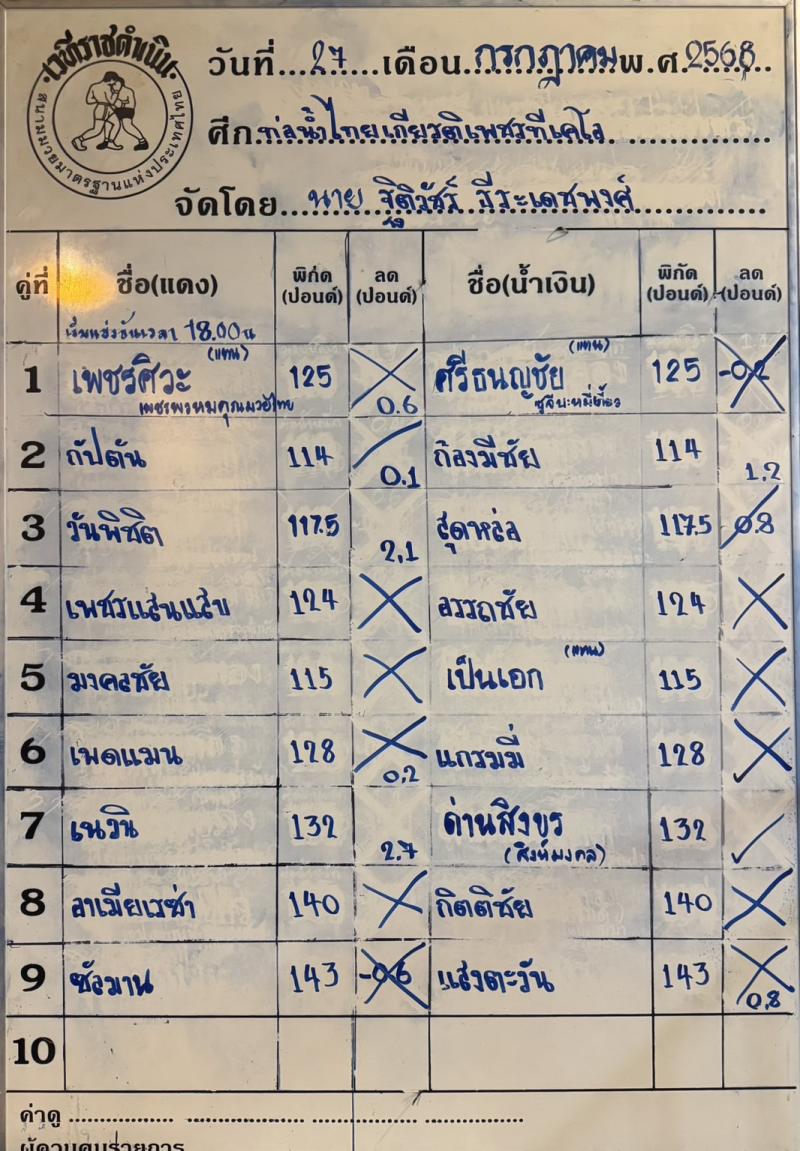 เวทีราชดำเนิน
สนามมวยมาตรฐานแห่งประเทศไทย
วันที่...27....เดือน.กรกฎาคม.พ.ศ.2568..
ศึก.ท่อน้ำไทยเกียรติเพชรทีเคโอ...............
จัดโดย....นาย ฐิติวัชร์ ธีระเดชพงศ์.............
คู่ที่ ชื่อ(แดง) พิกัด (ปอนด์) ลด (ปอนด์) ชื่อ(น้ำเงิน) พิกัด (ปอนด์) ลด (ปอนด์)
18.00น
(แทน) (แทน)
1 เพชรศิวะ 125 0.6 ศรีธนญชัย 125 -0.2
2 กัปตัน 114 0.1 ก้องมีชัย 114 1.2
3 วันพิชิต 117.5 2.1 สุดหล่อ 117.5 0.8
4 เพชรแสนแสบ 124 อรรถชัย 124
(แทน)
5 มงคลชัย 115 เป็นเอก 115
6 เพดแมน 128 0.2 แกรมมี่ 128
7 เนวิน 132 2.7 ด่านสิงขร 132
(สิงห์มงคล)
8 อาเมียเรซ่า 140 กิตติชัย 140
9 ซัลมาน 143 -0.6 แสงตะวัน 143 0.8
10
ค่าดู ................. ................... ................... ................
ผู้ควบคุมรายการ